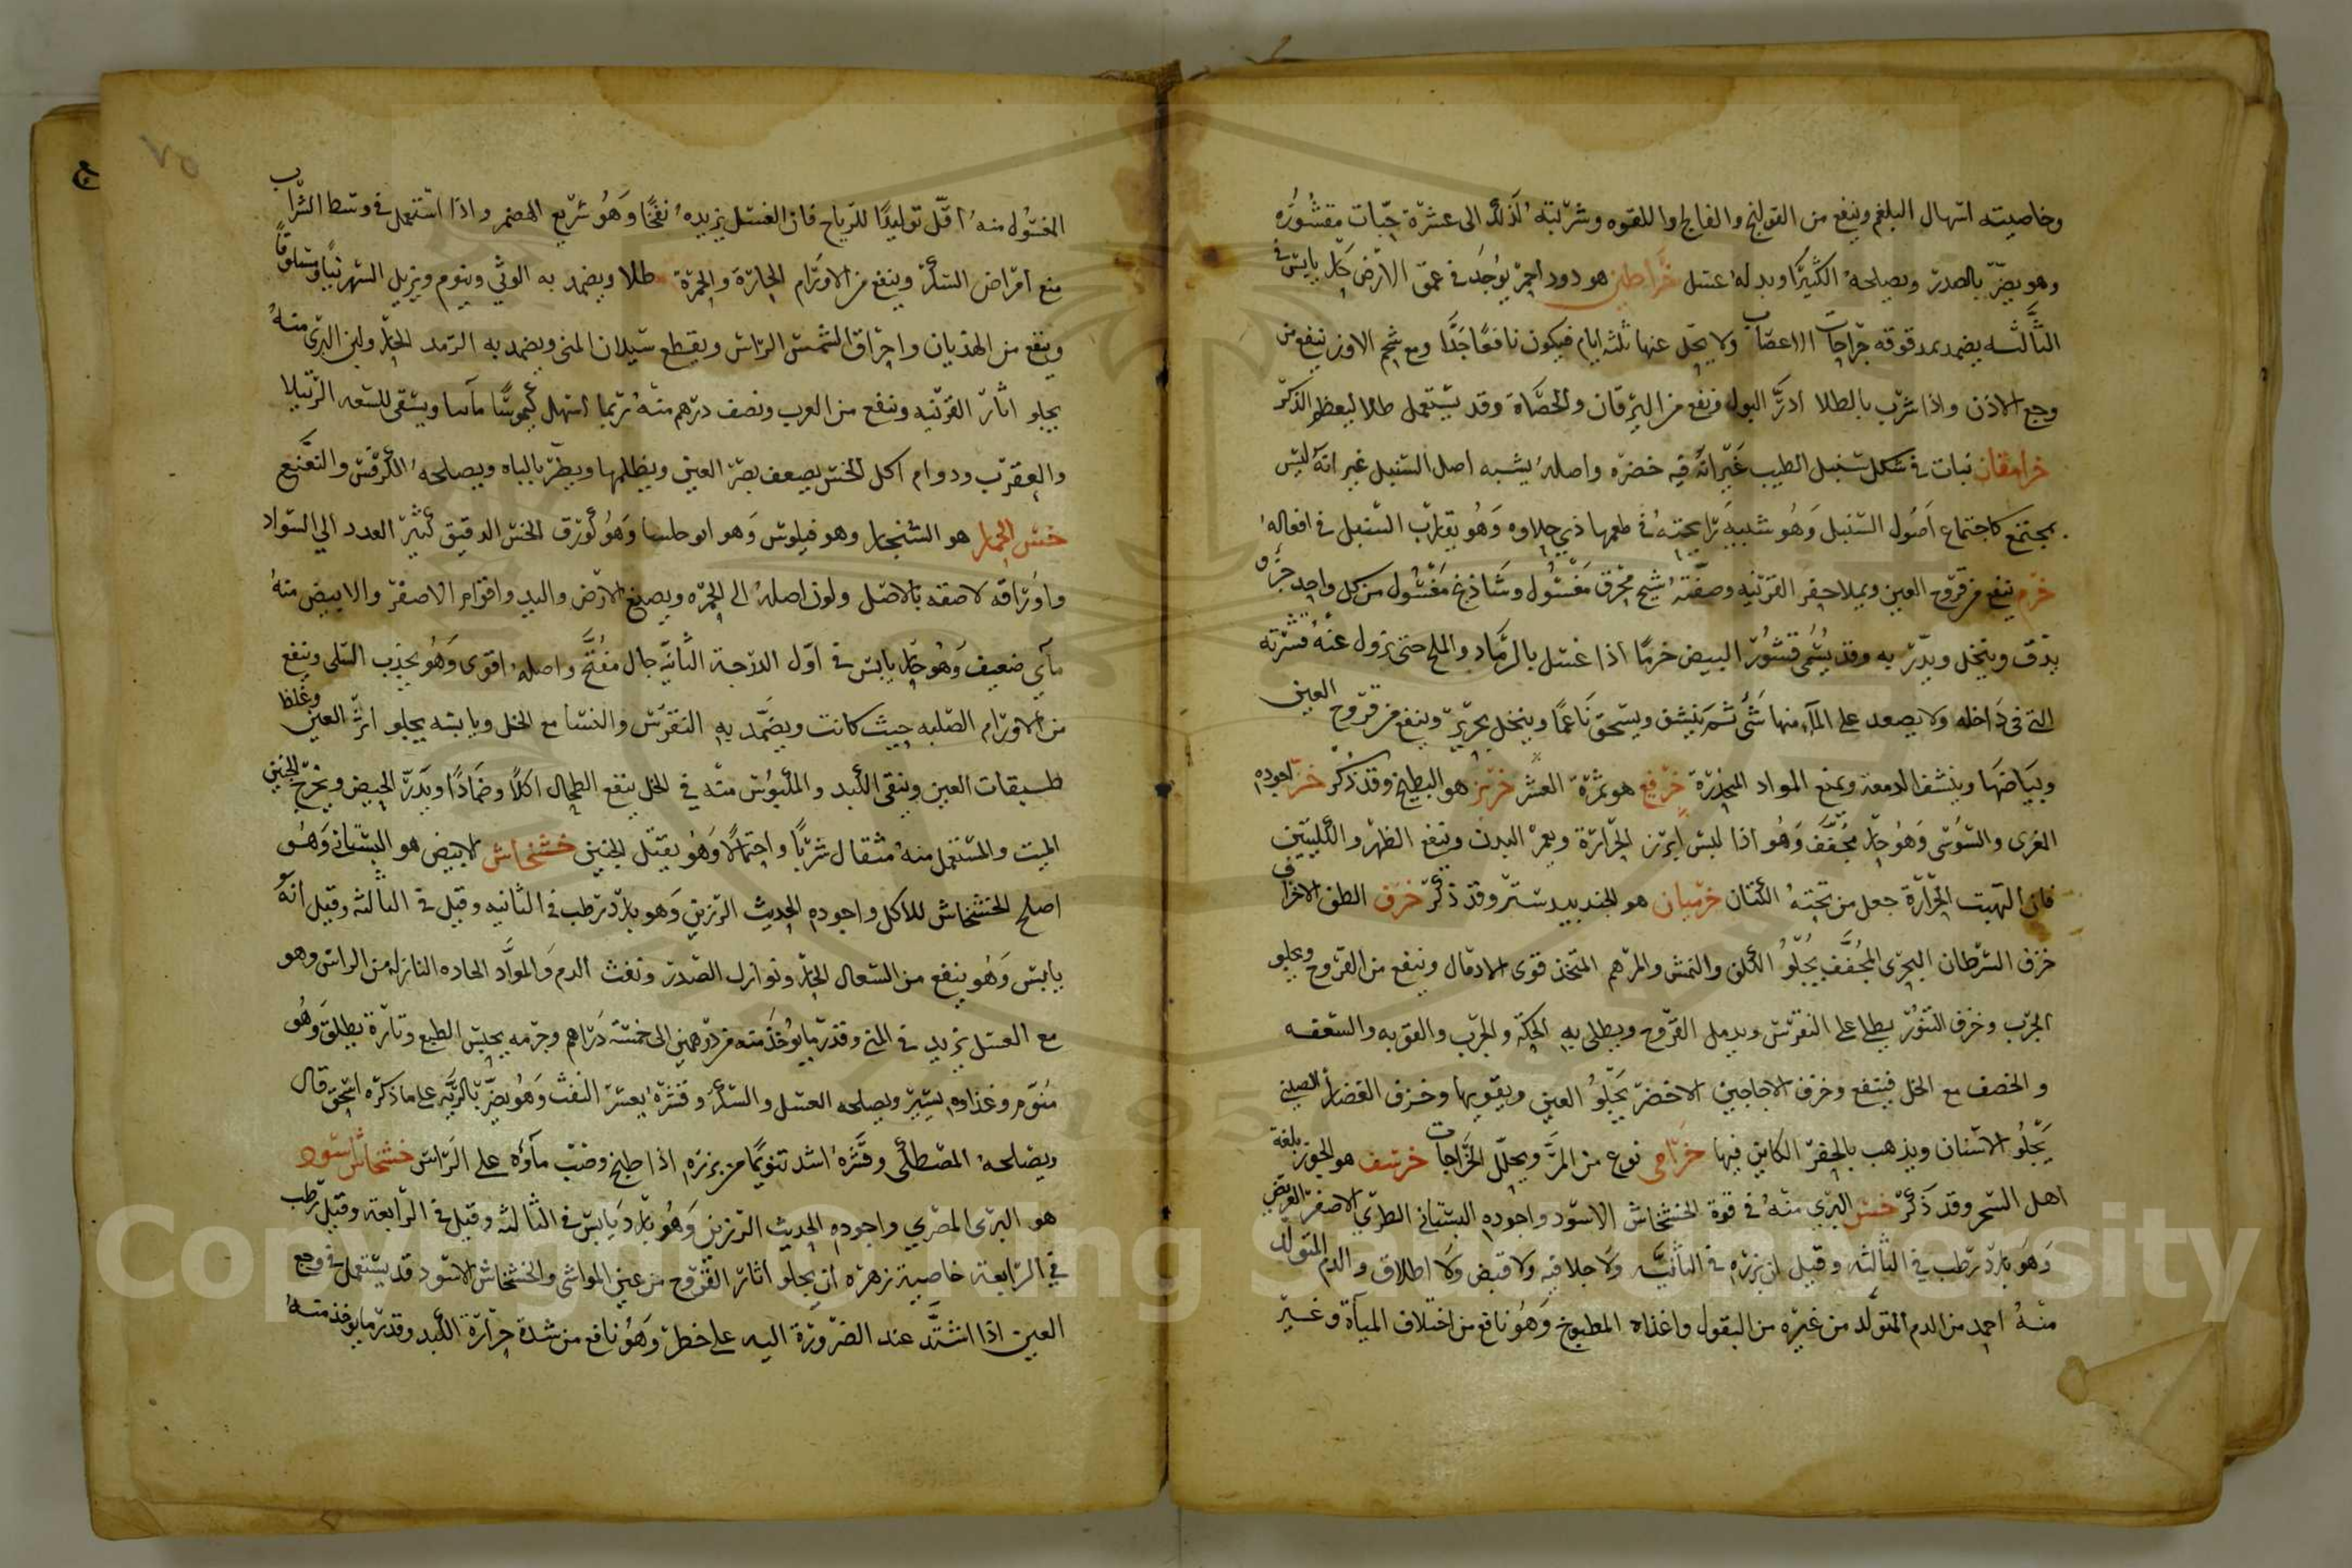 وخاصيته اسهال البلغم وينفع من القولنج والفالج واللقوه وشربته الى عشرة حبات مقشوره
وهو يضر بالصدر ويصلحه الكثيرا وبدله عسل خراطين هو دود احمر يوجد في عمق الارض حار يابس في
الثالثه يضمد بمدقوقه جراحات الاعصاب ولا يحل عنها ثلثه ايام فيكون نافعا جدا ومع شحم الاوز ينفع من
وجع الاذن واذا شرب بالطلا ادر البول ونفع من اليرقان والحصاة وقد يستعمل طلا ليعظم الذكر
خرامقان نبات في شكل سنبل الطيب غير انه فيه خضره واصله يشبه اصل السنبل غير انه ليس
بمجتمع كاجتماع اصول السنبل وهو شبيه برايحته في طعمها ذي حلاوه وهو يقارب السنبل في افعاله
خرم ينفع من قروح العين ويملا حفر القرنيه وصفته شيح محرق مغسول وشاذنج مغسول من كل واحد جزء
يدق وينخل ويذر به وقد يسمى قشور البيض خرما اذا غسل بالرماد والملح حتى تزول عنه قشرته
التي في داخله ولا يصعد على الماء منها شئ ثم ينشف ويسحق ناعما وينخل بحرير وينفع من قروح العين
وبياضها وينشف الدمعه ويمنع المواد المنحدرة خرفع هو ثمرة العشر خربز هو البطيخ وقد ذكر خز اجوده
الغزى والسوسى وهو حار مجفف وهو اذا لبس ابرز الحرارة ويعمر البدن وينفع الظهر والكليتين
فان الهبت الحرارة جعل من تحته الكتان خزميان هو الجندبيدستر وقد ذكر خزف الطف الاخزاف
خزف السرطان البحرى المجفف يجلو الكلف والنمش والمرهم المتخذ قوى الادمال وينفع من القروح ويجلو
الجرب وخزف التنور يطلى على النقرس ويدمل القروح ويطلى به الحكة والجرب والقوبه والسعفه
و الخصف مع الخل فينفع وخزف الاجاجين الاخضر يجلو العين ويقويها وخزف الغضار الصيني
يجلو الاسنان ويذهب بالحفر الكاين فيها خزامى نوع من المر ويحلل الخراجات خزسف هو الحور بلغة
اهل السحر وقد ذكر خس البرى منه في قوة الخشخاش الاسود واجوده البستاني الطري الاصفر العريض
وهو بارد رطب في الثالثه وقيل ان بزره في الثانيه ولا جلا فيه ولا قبض ولا اطلاق والدم المتولد
منه احمد من الدم المتولد من غيره من البقول واغذاه المطبوخ وهو نافع من اختلاف المياة وغير
المغسول منه اقل توليدا للرياح فان الغسل يزيده نفخا وهو سريع الهضم واذا استعمل في وسط الشراب
منع امراض السكر وينفع من الاورام الحارة والحمرة طلا ويضمد به الوثي وينوم ويزيل السهر نيا ومسلوقا
وينفع من الهذيان واحراق الشمس الراس ويقطع سيلان المنى ويضمد به الرمد الحار ولبن البرى منه
يجلو اثار القرنيه وينفع من الغرب ونصف درهم منه ربما اسهل كيموسا مائيا ويسقى للسعه الرتيلا
والعقرب ودوام اكل الخس يضعف بصر العين ويظلمها ويضر بالباه ويصلحه الكرفس والنعنع
خس الحمار هو الشنجار وهو فيلوس وهو ابو حلسا وهو كورق الخس الدقيق كثير العدد الى السواد
واوراقه لاصقه بالاصل ولون اصله الى الحمره ويصبغ الارض واليد واقوام الاصفر والابيض منه
مآي ضعيف وهو حار يابس في اول الدرجة الثانيه جال مفتح واصله اقوى وهو يجذب السلى وينفع
من الاورام الصلبه حيث كانت ويضمد به النقرس والنسا مع الخل ويابسه يجلو اثر العين وغلظ
طبقات العين وينقى الكبد والمكبوس منه في الخل ينفع الطحال اكلا وضمادا ويدر الحيض ويخرج الجنين
الميت والمستعمل منه مثقال شربا واحتمالا وهو يقتل الجنين خشخاش الابيض هو البستاني وهو
اصلح الخشخاش للاكل واجوده الحديث الرزين وهو بارد رطب في الثانيه وقيل في الثالثه وقيل انه
يابس وهو ينفع من السعال الحار ونوازل الصدر ونفث الدم والمواد الحاده النازله من الراس وهو
مع العسل يزيد في المنى وقدر ما يؤخذ منه من درهمين الى خمسة دراهم وجرمه يحبس الطبع وتارة يطلق وهو
منوم وغذاوه يسير ويصلحه العسل والسكر وقشره يعسر النفث وهو يضر بالريه على ما ذكره اسحق قال
ويصلحه المصطكى وقشره اشد تنويما من بزره اذا طبخ وصب مآؤه على الراس خشخاش اسود
هو البرى المصري واجوده الحديث الرزين وهو بارد يابس في الثالثه وقيل في الرابعة وقيل رطب
في الرابعة خاصية زهره ان يجلو اثار القروح من عين المواشى والخشخاش الاسود قد يستعمل في وجع
العين اذا اشتد عند الضرورة اليه على خطر وهو نافع من شدة حرارة الكبد وقدر ما يوخذ منه
٧٥
Copyright © King Saud University
1957